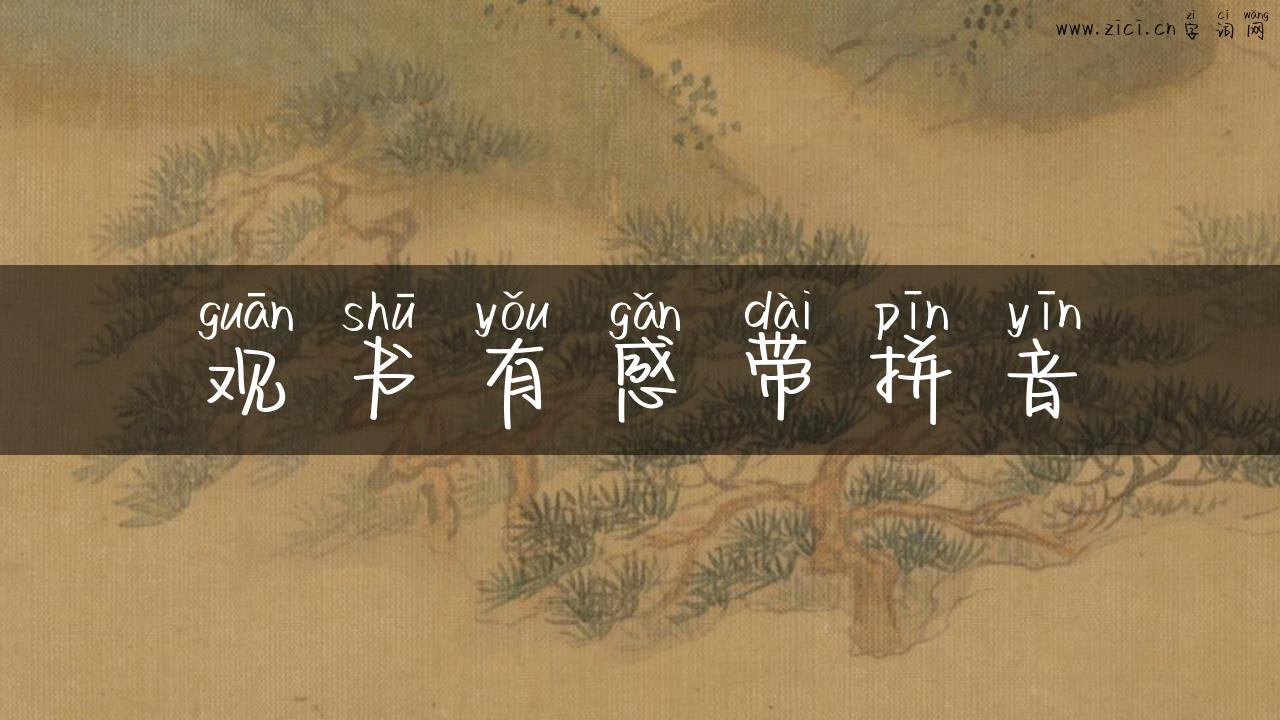 zì cí wǎng
www.zici.cn 字词网
guān shū yǒu gǎn dài pīn yīn
观书有感带拼音